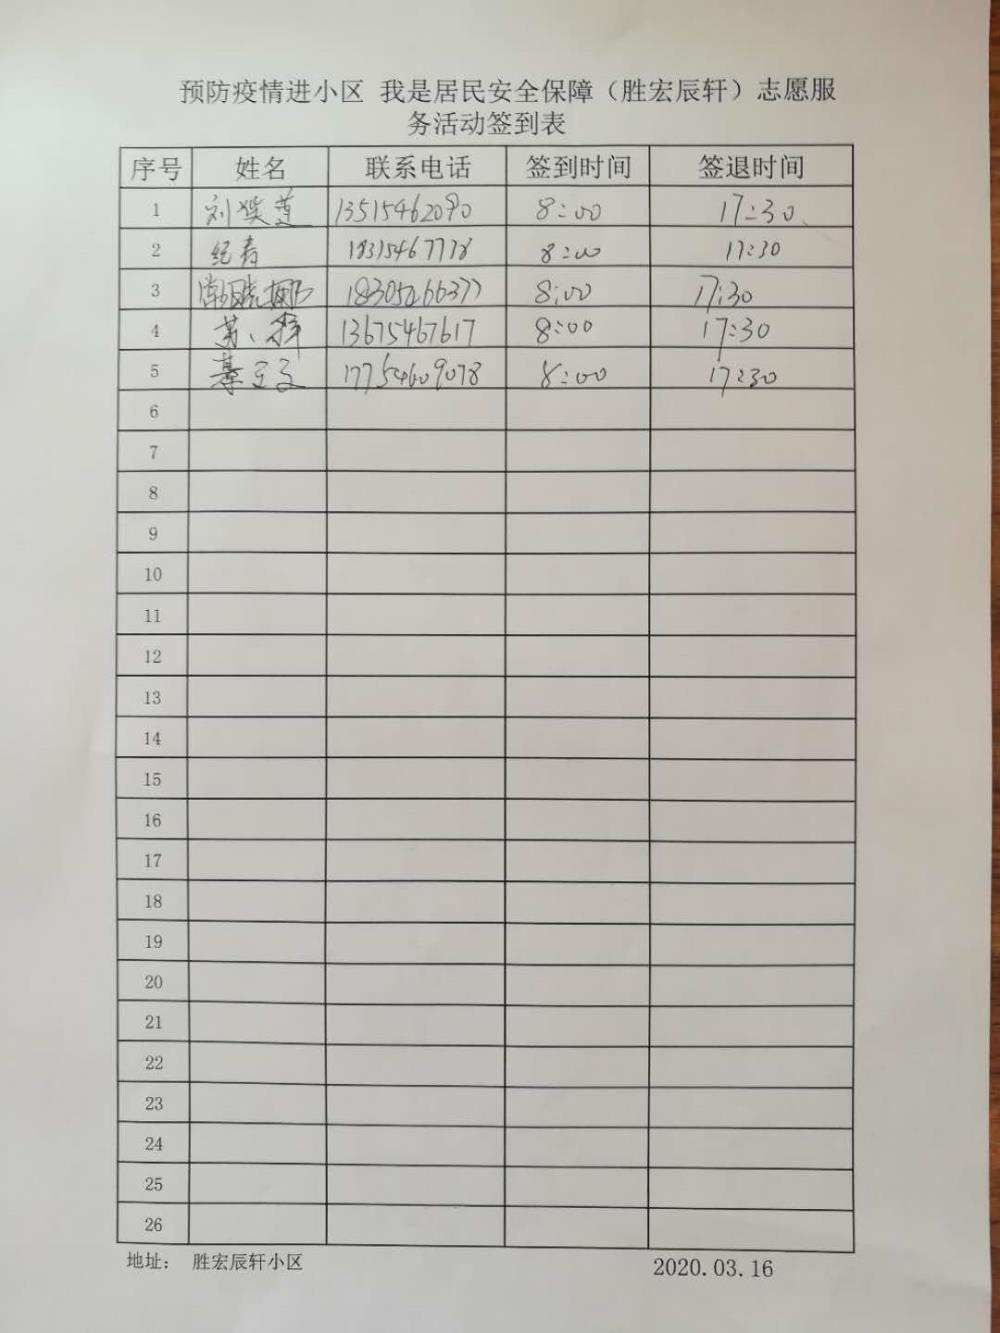 预防疫情进小区 我是居民安全保障（胜宏辰轩）志愿服
务活动签到表
序号 姓名 联系电话 签到时间 签退时间
1 刘 13515462090 8:00 17:30
2 纪青 18315467778 8:00 17:30
3 8:00 17:30
4 13675467617 8:00 17:30
5 17754609078 8:00 17:30
6
7
8
9
10
11
12
13
14
15
16
17
18
19
20
21
22
23
24
25
26
地址： 胜宏辰轩小区 2020.03.16